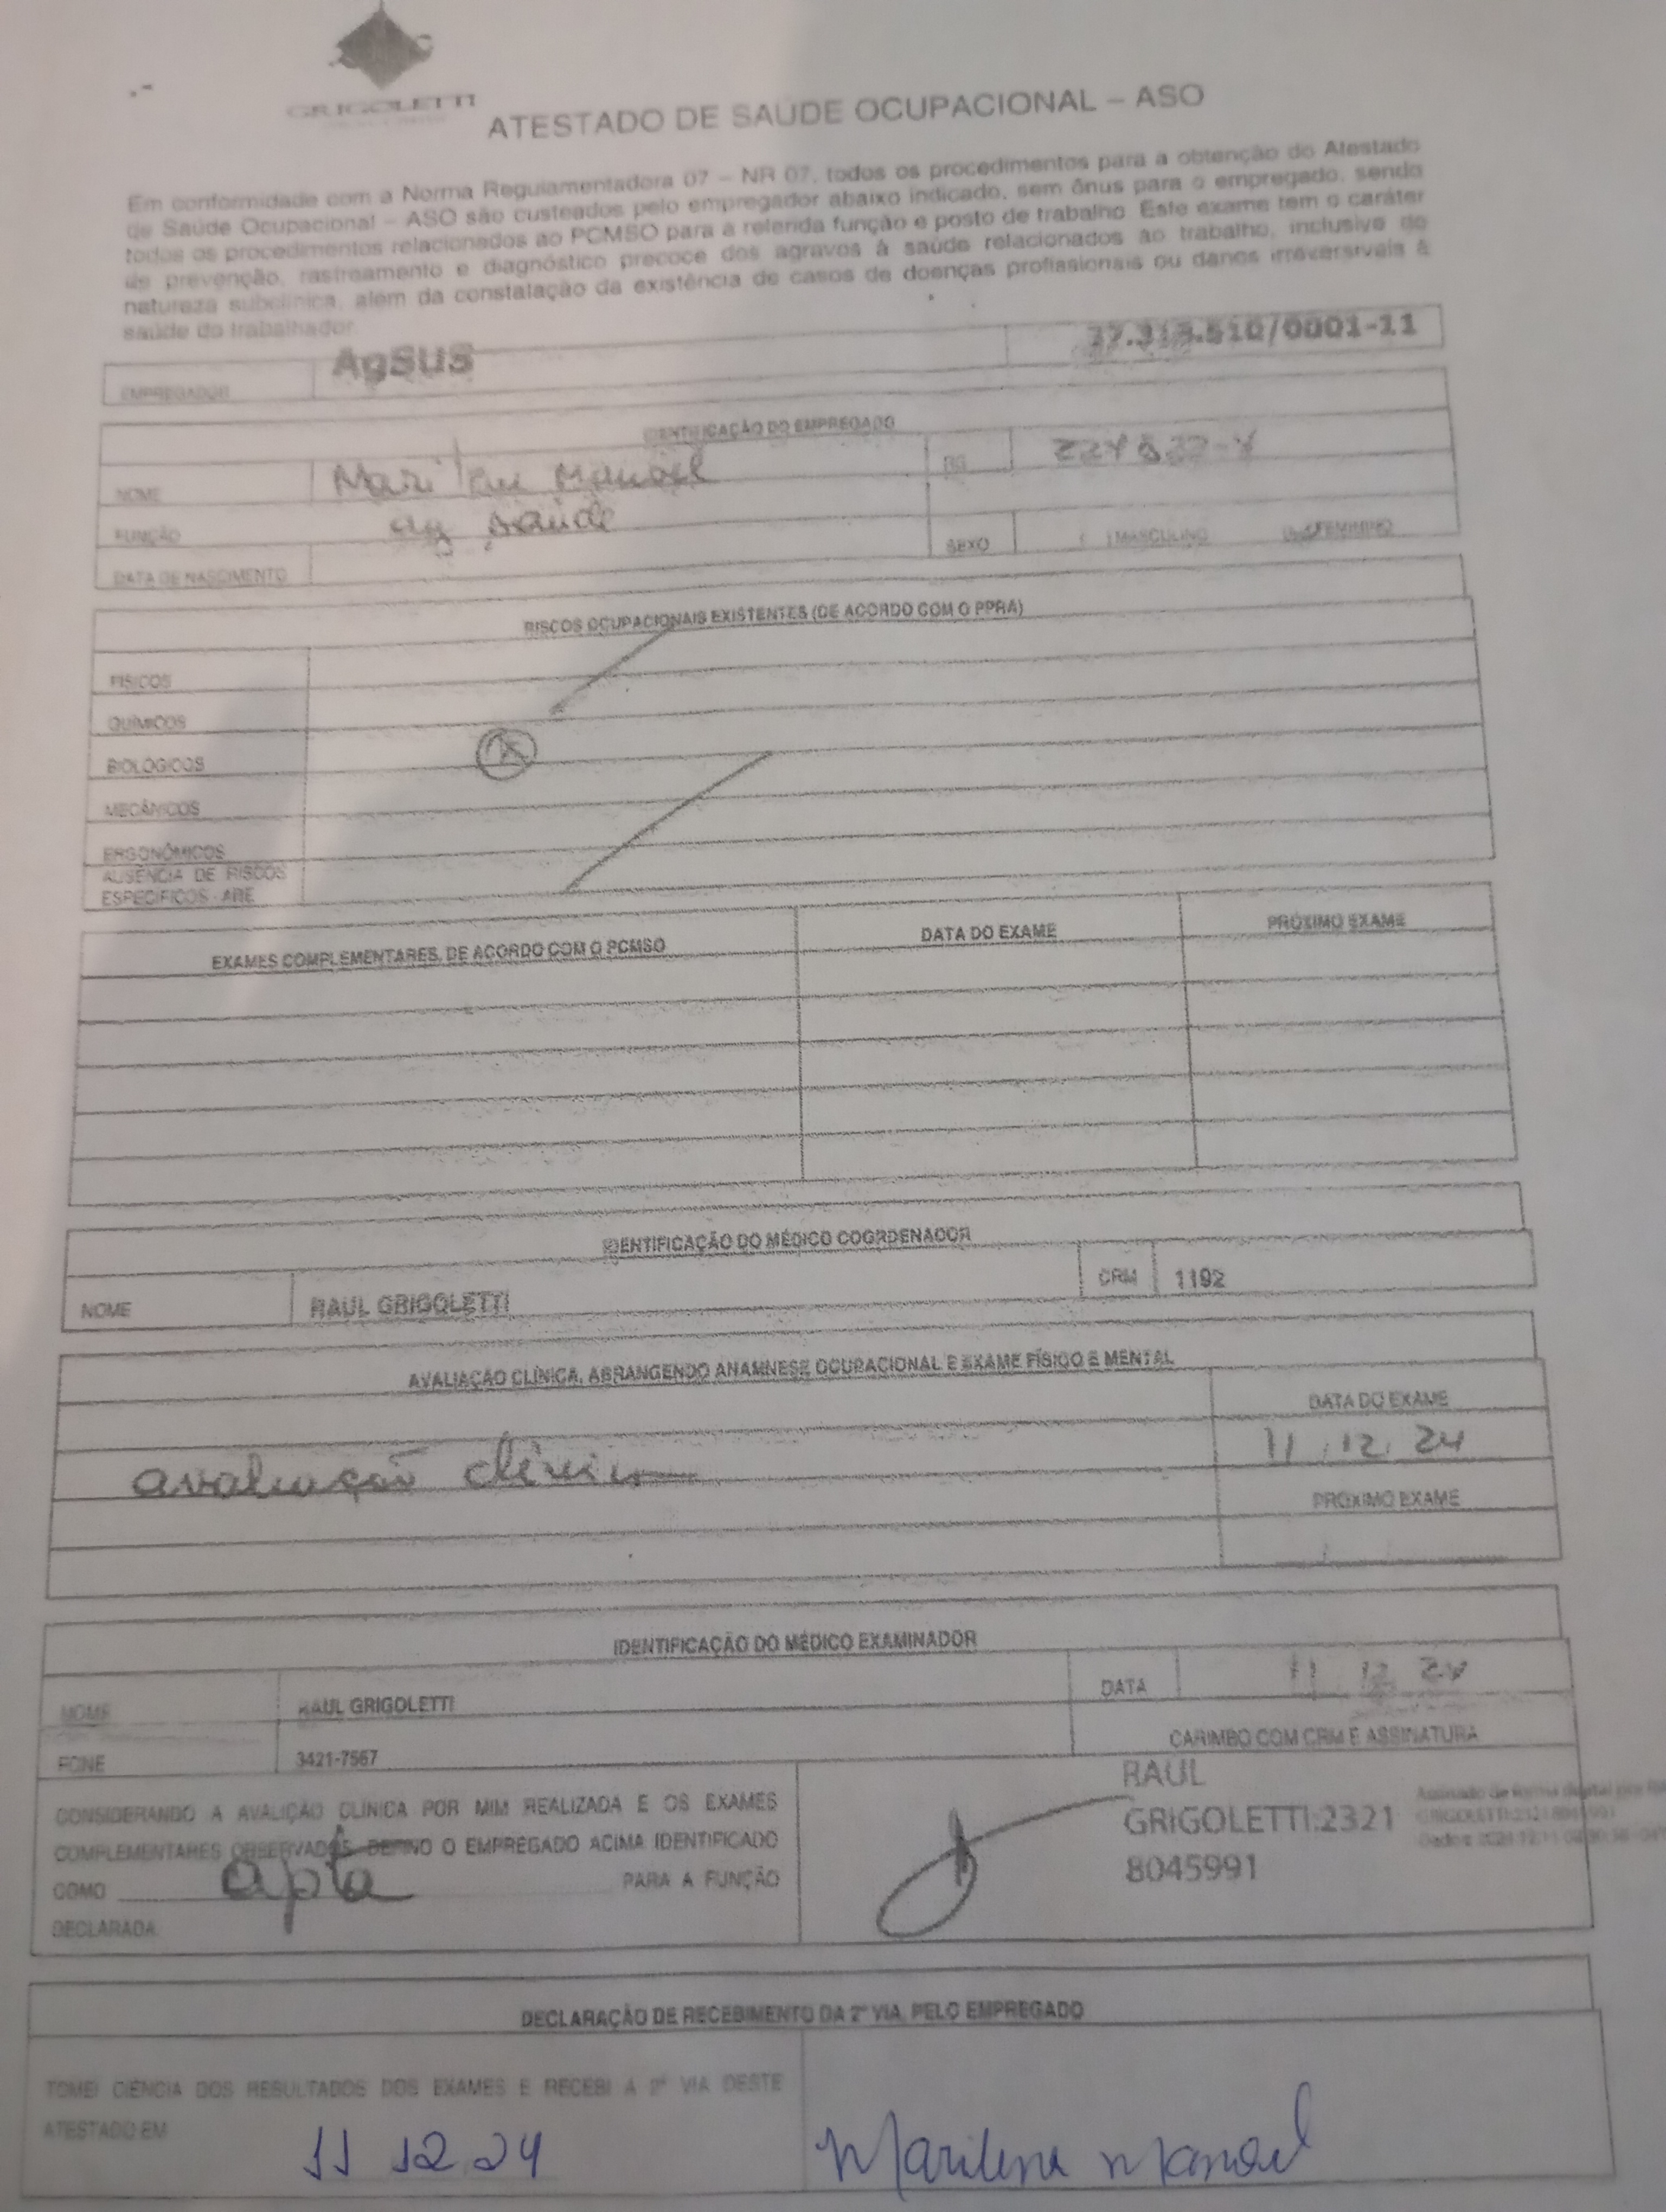 GRIGOLETTI
ATESTADO DE SAÚDE OCUPACIONAL – ASO
Em conformidade com a Norma Regulamentadora 07 – NR 07, todos os procedimentos para a obtenção do Atestado
de Saúde Ocupacional – ASO são custeados pelo empregador abaixo indicado, sem ônus para o empregado, sendo
todos os procedimentos relacionados ao PCMSO para a referida função e posto de trabalho. Este exame tem o caráter
de prevenção, rastreamento e diagnóstico precoce dos agravos à saúde relacionados ao trabalho, inclusive de
natureza subclínica, além da constatação da existência de casos de doenças profissionais ou danos irreversíveis à
saúde do trabalhador.
EMPREGADOR AgSUS /0001-11
IDENTIFICAÇÃO DO EMPREGADO
NOME Manoel RG
FUNÇÃO ag saúde
SEXO ( ) MASCULINO FEMININO
DATA DE NASCIMENTO
RISCOS OCUPACIONAIS EXISTENTES (DE ACORDO COM O PPRA)
FÍSICOS
QUÍMICOS
BIOLÓGICOS
MECÂNICOS
ERGONÔMICOS
AUSÊNCIA DE RISCOS
ESPECÍFICOS - ARE
EXAMES COMPLEMENTARES, DE ACORDO COM O PCMSO DATA DO EXAME PRÓXIMO EXAME
IDENTIFICAÇÃO DO MÉDICO COORDENADOR
NOME RAUL GRIGOLETTI CRM 1192
AVALIAÇÃO CLÍNICA, ABRANGENDO ANAMNESE OCUPACIONAL E EXAME FÍSICO E MENTAL
DATA DO EXAME
avaliação clínica 11.12.24
PRÓXIMO EXAME
IDENTIFICAÇÃO DO MÉDICO EXAMINADOR
NOME RAUL GRIGOLETTI DATA 11 12 24
FONE 3421-7567 CARIMBO COM CRM E ASSINATURA
CONSIDERANDO A AVALIÇÃO CLÍNICA POR MIM REALIZADA E OS EXAMES
COMPLEMENTARES OBSERVADOS, DEFINO O EMPREGADO ACIMA IDENTIFICADO
COMO apta PARA A FUNÇÃO
DECLARADA.
RAUL
GRIGOLETTI:2321
8045991
Assinado de forma digital por
DECLARAÇÃO DE RECEBIMENTO DA 2ª VIA, PELO EMPREGADO
TOMEI CIÊNCIA DOS RESULTADOS DOS EXAMES E RECEBI A 2ª VIA DESTE
ATESTADO EM 11 12 24
Marilene Manoel